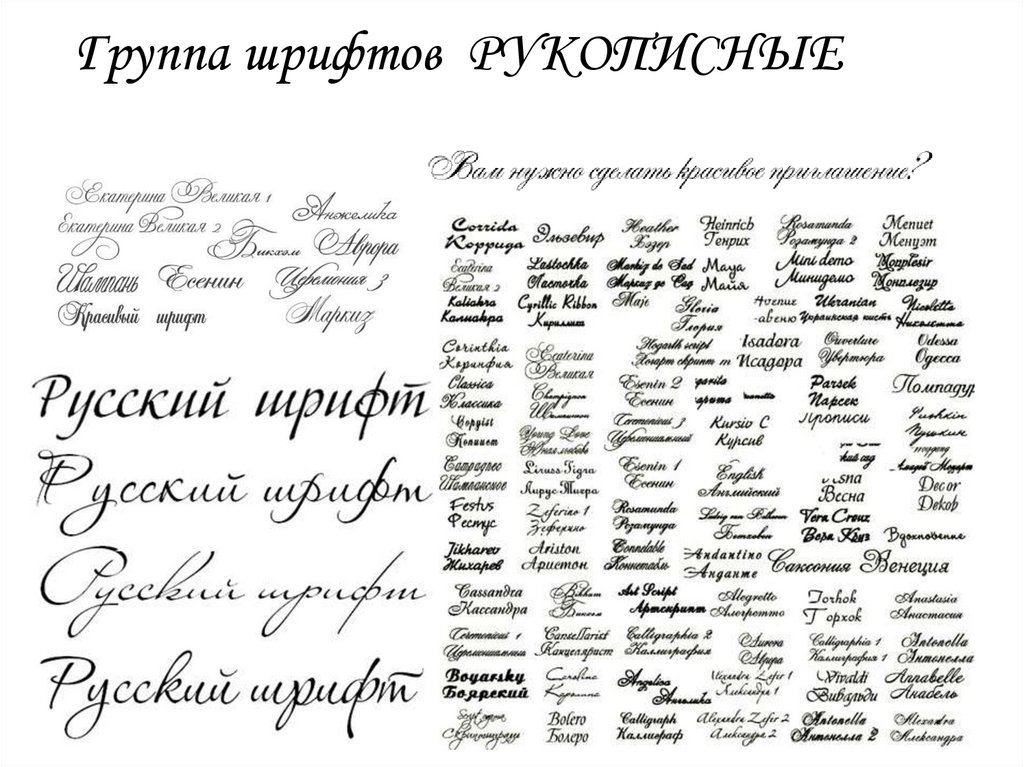 Группа шрифтов РУКОПИСНЫЕ
Вам нужно сделать красивое приглашение?
Екатерина Великая 1
Анжелика
Екатерина Великая 2
Бикхэм Аврора
Шампань Есенин Церемония 3
Красивый шрифт Маркиз
Русский шрифт
Русский шрифт
Русский шрифт
Русский шрифт
Corrida
Коррида
Эльзевир
Heather
Хэзер
Heinrich
Генрих
Rosamunda
Розамунда 2
Menuet
Менуэт
Ecaterina
Великая 2
Lastochka
Ласточка
Markiz de Sad
Маркиз де Сад
Maya
Майя
Mini demo
Минидемо
Monplesir
Монплезир
Kaliakra
Калиакра
Cyrillic Ribbon
Кириллица
Maje
Gloria
Глория
Avenue
-авеню
Ukranian
Украинская кисть
Nicoletta
Николетта
Corinthia
Коринфия
Ecaterina
Великая
Hogarth script
Хогарт скрипт
Isadora
Исадора
Ouverture
Увертюра
Odessa
Одесса
Classica
Классика
Champignon
Esenin 2
Есенин
Parsek
Парсек
Помпадур
Copyist
Копиист
Young Love
Юная любовь
Ceremonious 3
Церемониальный
Kursiv C
Курсив
Прописи
Pushkin
Пушкин
Шампанское
Linuss Tigra
Лирус Тигра
Esenin 1
Есенин
English
Английский
Весна
Decor
Декор
Festus
Фестус
Zeferino 1
Зеферино
Rosamunda
Розамунда
Ludvig van Bethoven
Бетховен
Vera Crouz
Вера Круз
Вдохновение
Jikharev
Жихарев
Ariston
Аристон
Connetable
Коннетабль
Andantino
Анданте
Саксония
Венеция
Cassandra
Кассандра
Bikham
Бикхэм
Art Script
Артскрипт
Alegretto
Алегретто
Torhok
Торжок
Anastasia
Анастасия
Ceremonious 1
Церемониальный
Cansellarist
Канцелярист
Calligraphia 2
Каллиграфия
Aurora
Аврора
Calligraphia 1
Каллиграфия 1
Antonella
Антонелла
Boyarsky
Боярский
Carolina
Каролина
Angelica
Анжелика
Alexandra Zefer 1
Александра 1
Vivaldi
Вивальди
Annabelle
Анабель
Bolero
Болеро
Calligraph
Каллиграф
Alexandra Zefer 2
Александра 2
Antonella
Антонелла 2
Alexandra
Александра